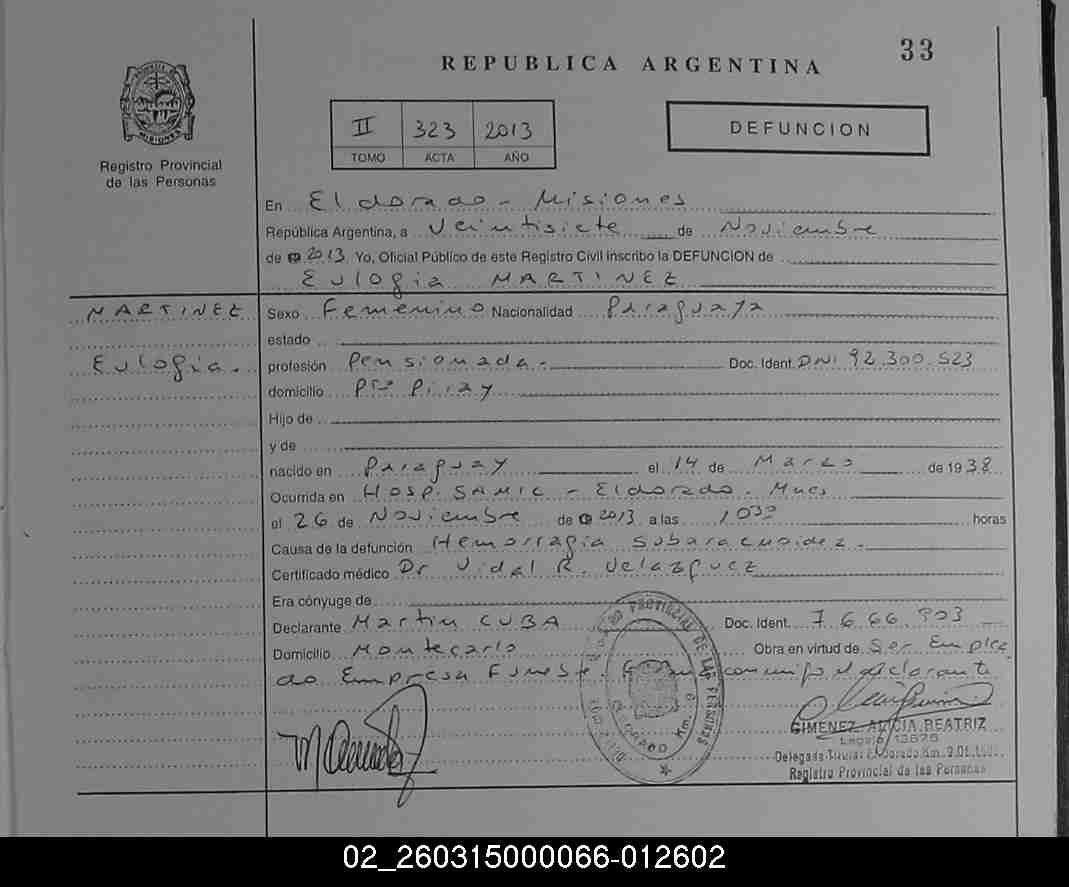 33
REPUBLICA ARGENTINA
Registro Provincial
de las Personas
II 323 2013
TOMO ACTA AÑO
DEFUNCION
En Eldorado - Misiones
República Argentina, a Veintisiete de Noviembre
de 2013 Yo, Oficial Público de este Registro Civil inscribo la DEFUNCION de
Eulogia MARTINEZ
MARTINEZ
Eulogia.
Sexo Femenino Nacionalidad Paraguaya
estado
profesión Pensionada.- Doc. Ident. DNI 92.300.523
domicilio Pto Piray
Hijo de
y de
nacido en Paraguay el 14 de Marzo de 1938
Ocurrida en Hosp. SAMIC - Eldorado. Mnes
el 26 de Noviembre de 2013 a las 10 30 horas
Causa de la defunción Hemorragia Subaracnoidez.
Certificado médico Dr Vidal R. Velazquez
Era cónyuge de
Declarante Martin CUBA Doc. Ident. 7.666.903
Domicilio Montecarlo Obra en virtud de Ser Emplea
do Empresa Funebre. conmigo el declarante
GIMENEZ ALICIA BEATRIZ
Legajo 13875
Delegada Titular Eldorado Km. 9
Registro Provincial de las Personas
REGISTRO PROVINCIAL DE LAS PERSONAS
ELDORADO Km. 9
MISIONES
02_260315000066-012602